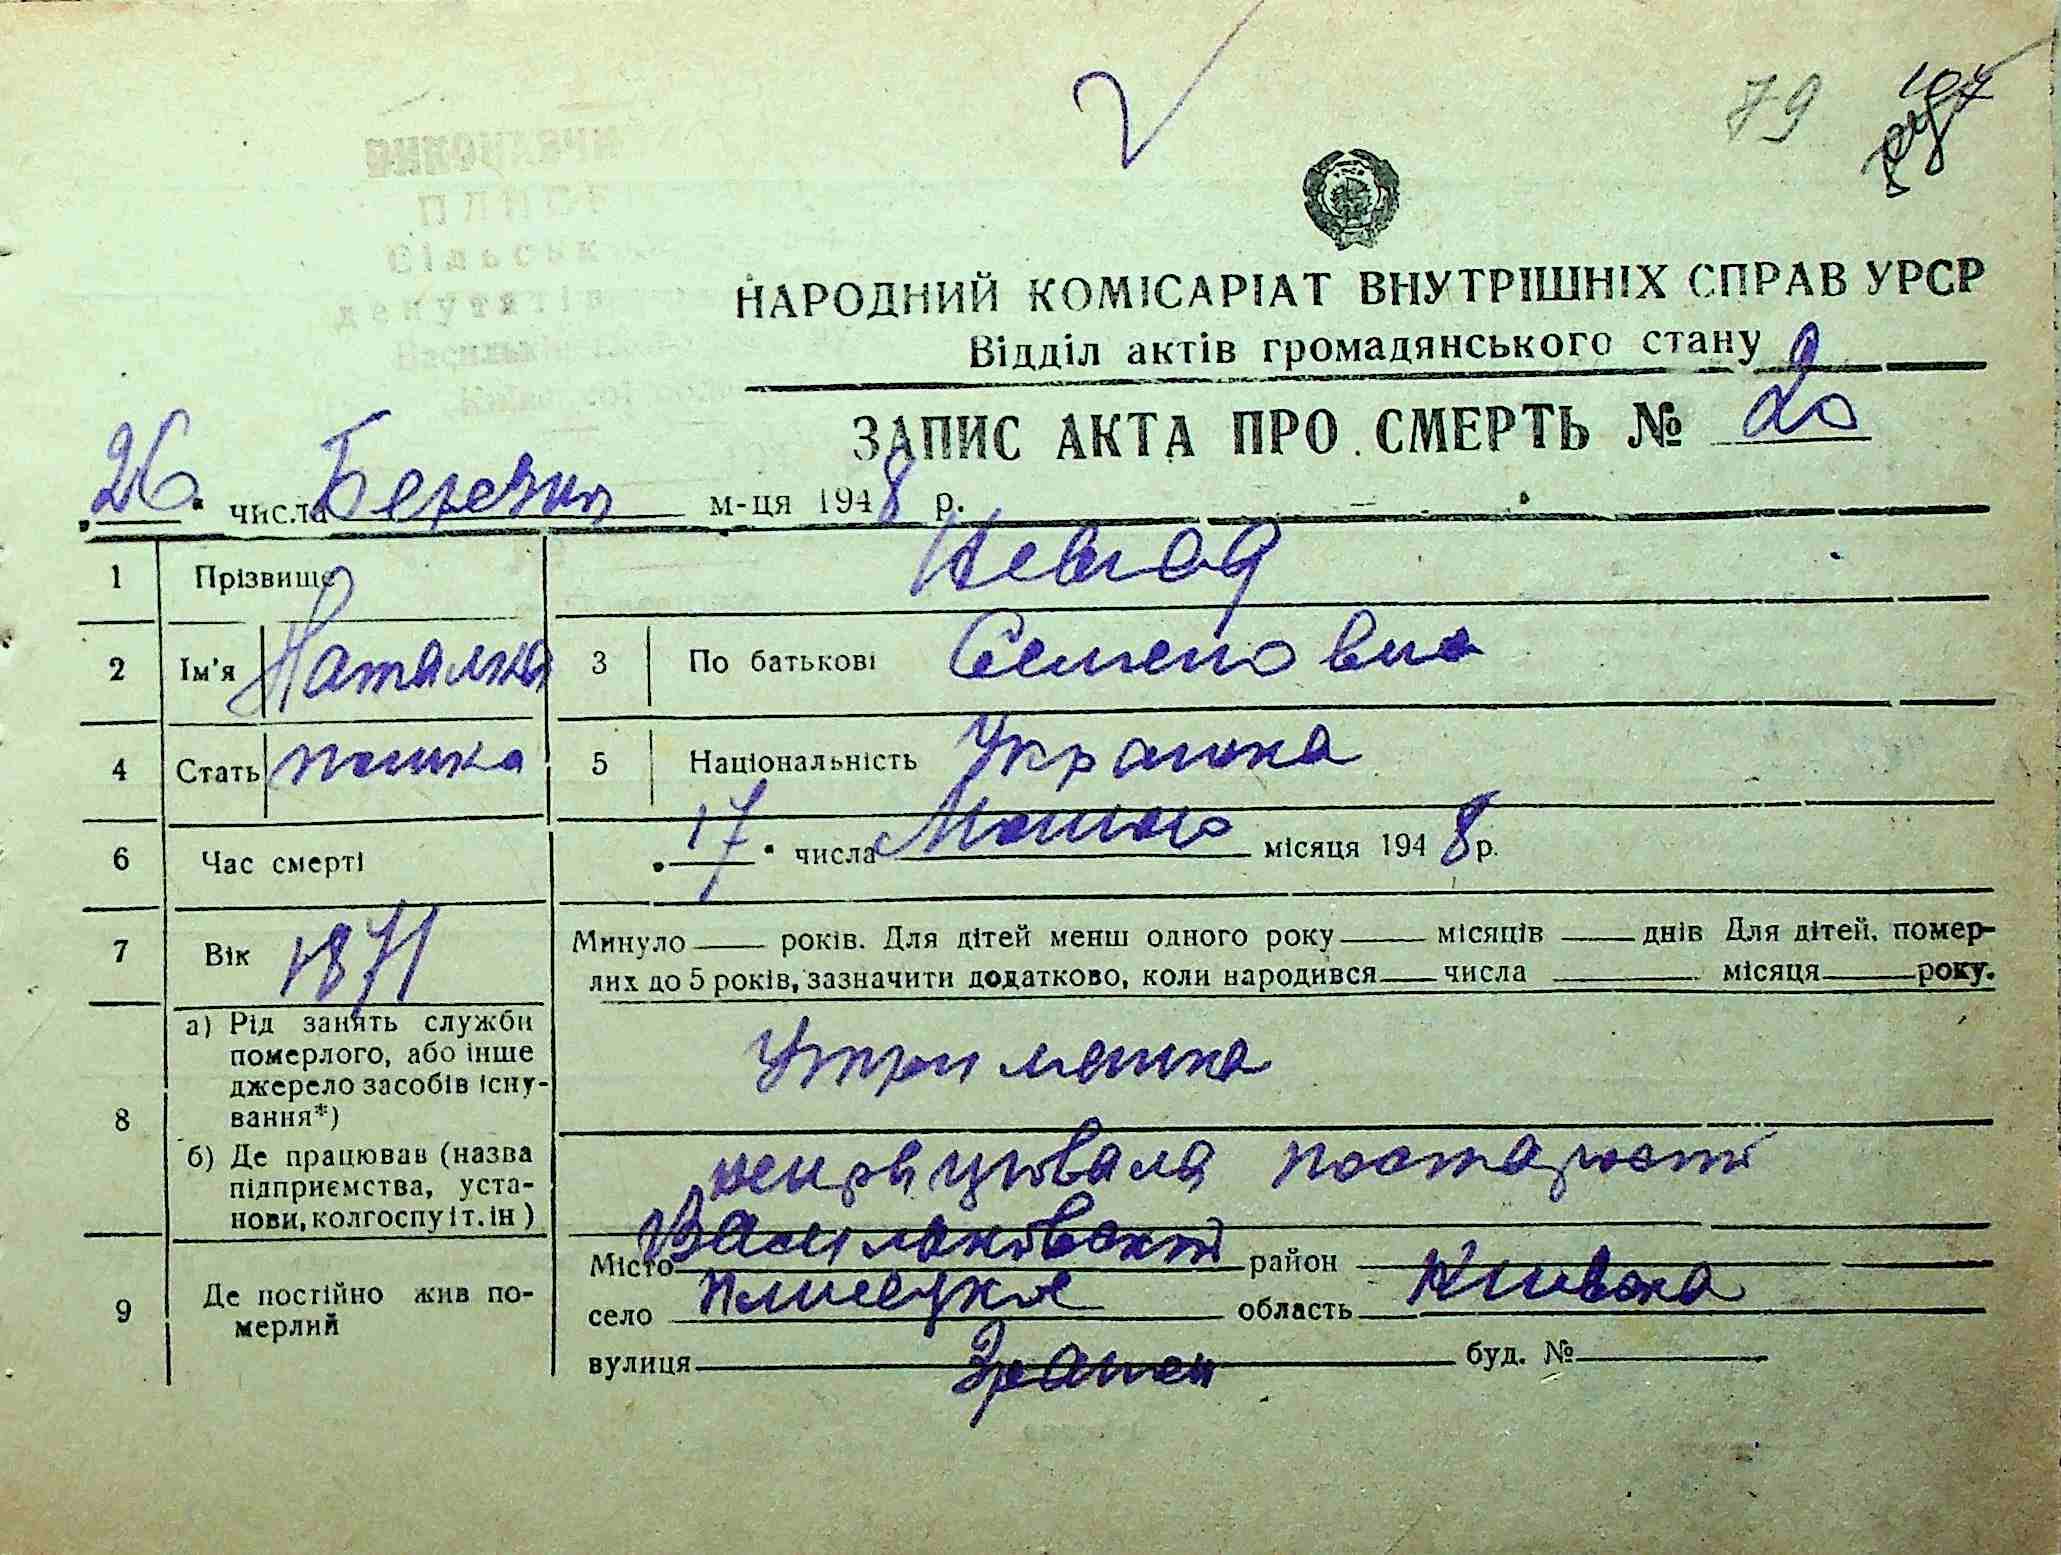 79
НАРОДНИЙ КОМІСАРІАТ ВНУТРІШНІХ СПРАВ УРСР
Відділ актів громадянського стану
ЗАПИС АКТА ПРО СМЕРТЬ № 20
„26“ числа Березня м-ця 1948 р.
1 Прізвище
2 Ім'я Наталка 3 По батькові Семеновна
4 Стать 5 Національність Українка
6 Час смерті „17“ числа місяця 1948 р.
7 Вік 1871 Минуло ___ років. Для дітей менш одного року ___ місяців ___ днів Для дітей, помер-
лих до 5 років, зазначити додатково, коли народився ___ числа ___ місяця ___ року.
8 а) Рід занять служби
померлого, або інше
джерело засобів існу-
вання*)
Утриманка
б) Де працював (назва
підприємства, уста-
нови, колгоспу і т. ін)
непрацювала постарості
9 Де постійно жив по-
мерлий
Місто Васильковский район
село Плисецкое область Киевска
вулиця буд. №